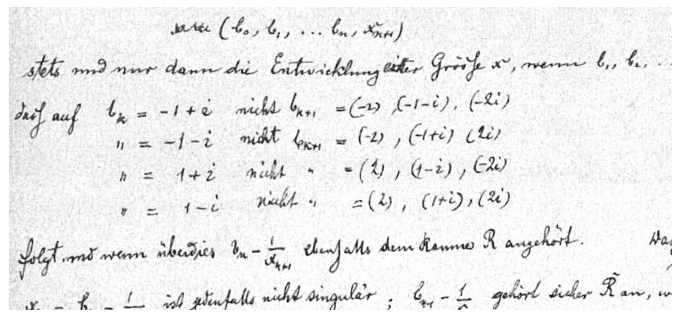 (b₀, b₁, ... bₙ, xₙ₊₁)
stets und nur dann die Entwicklung einer Größe x, wenn b₁, b₂, ...
darf auf bₖ = -1+i nicht bₖ₊₁ = (-2), (-1-i), (-2i)
" = -1-i nicht bₖ₊₁ = (-2), (-1+i) (2i)
" = 1+i nicht " = (2), (1-i), (-2i)
" = 1-i nicht " = (2), (1+i), (2i)
folgt und wenn überdies bₙ - 1/xₙ₊₁ ebenfalls dem Raume R angehört.
ist jedenfalls nicht singulär; gehört sicher R̄ an,